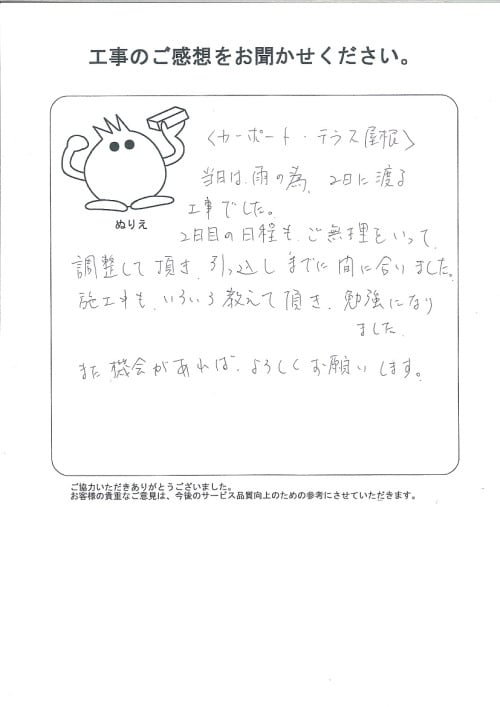 工事のご感想をお聞かせください。
〈カーポート・テラス屋根〉
当日は、雨の為、2日に渡る
工事でした。
2日目の日程も、ご無理をいって、
調整して頂き、引っ越しまでに間に合いました。
施工中も、いろいろ教えて頂き、勉強になり
ました。
また機会があれば、よろしくお願いします。
ぬりえ
ご協力いただきありがとうございました。
お客様の貴重なご意見は、今後のサービス品質向上のための参考にさせていただきます。